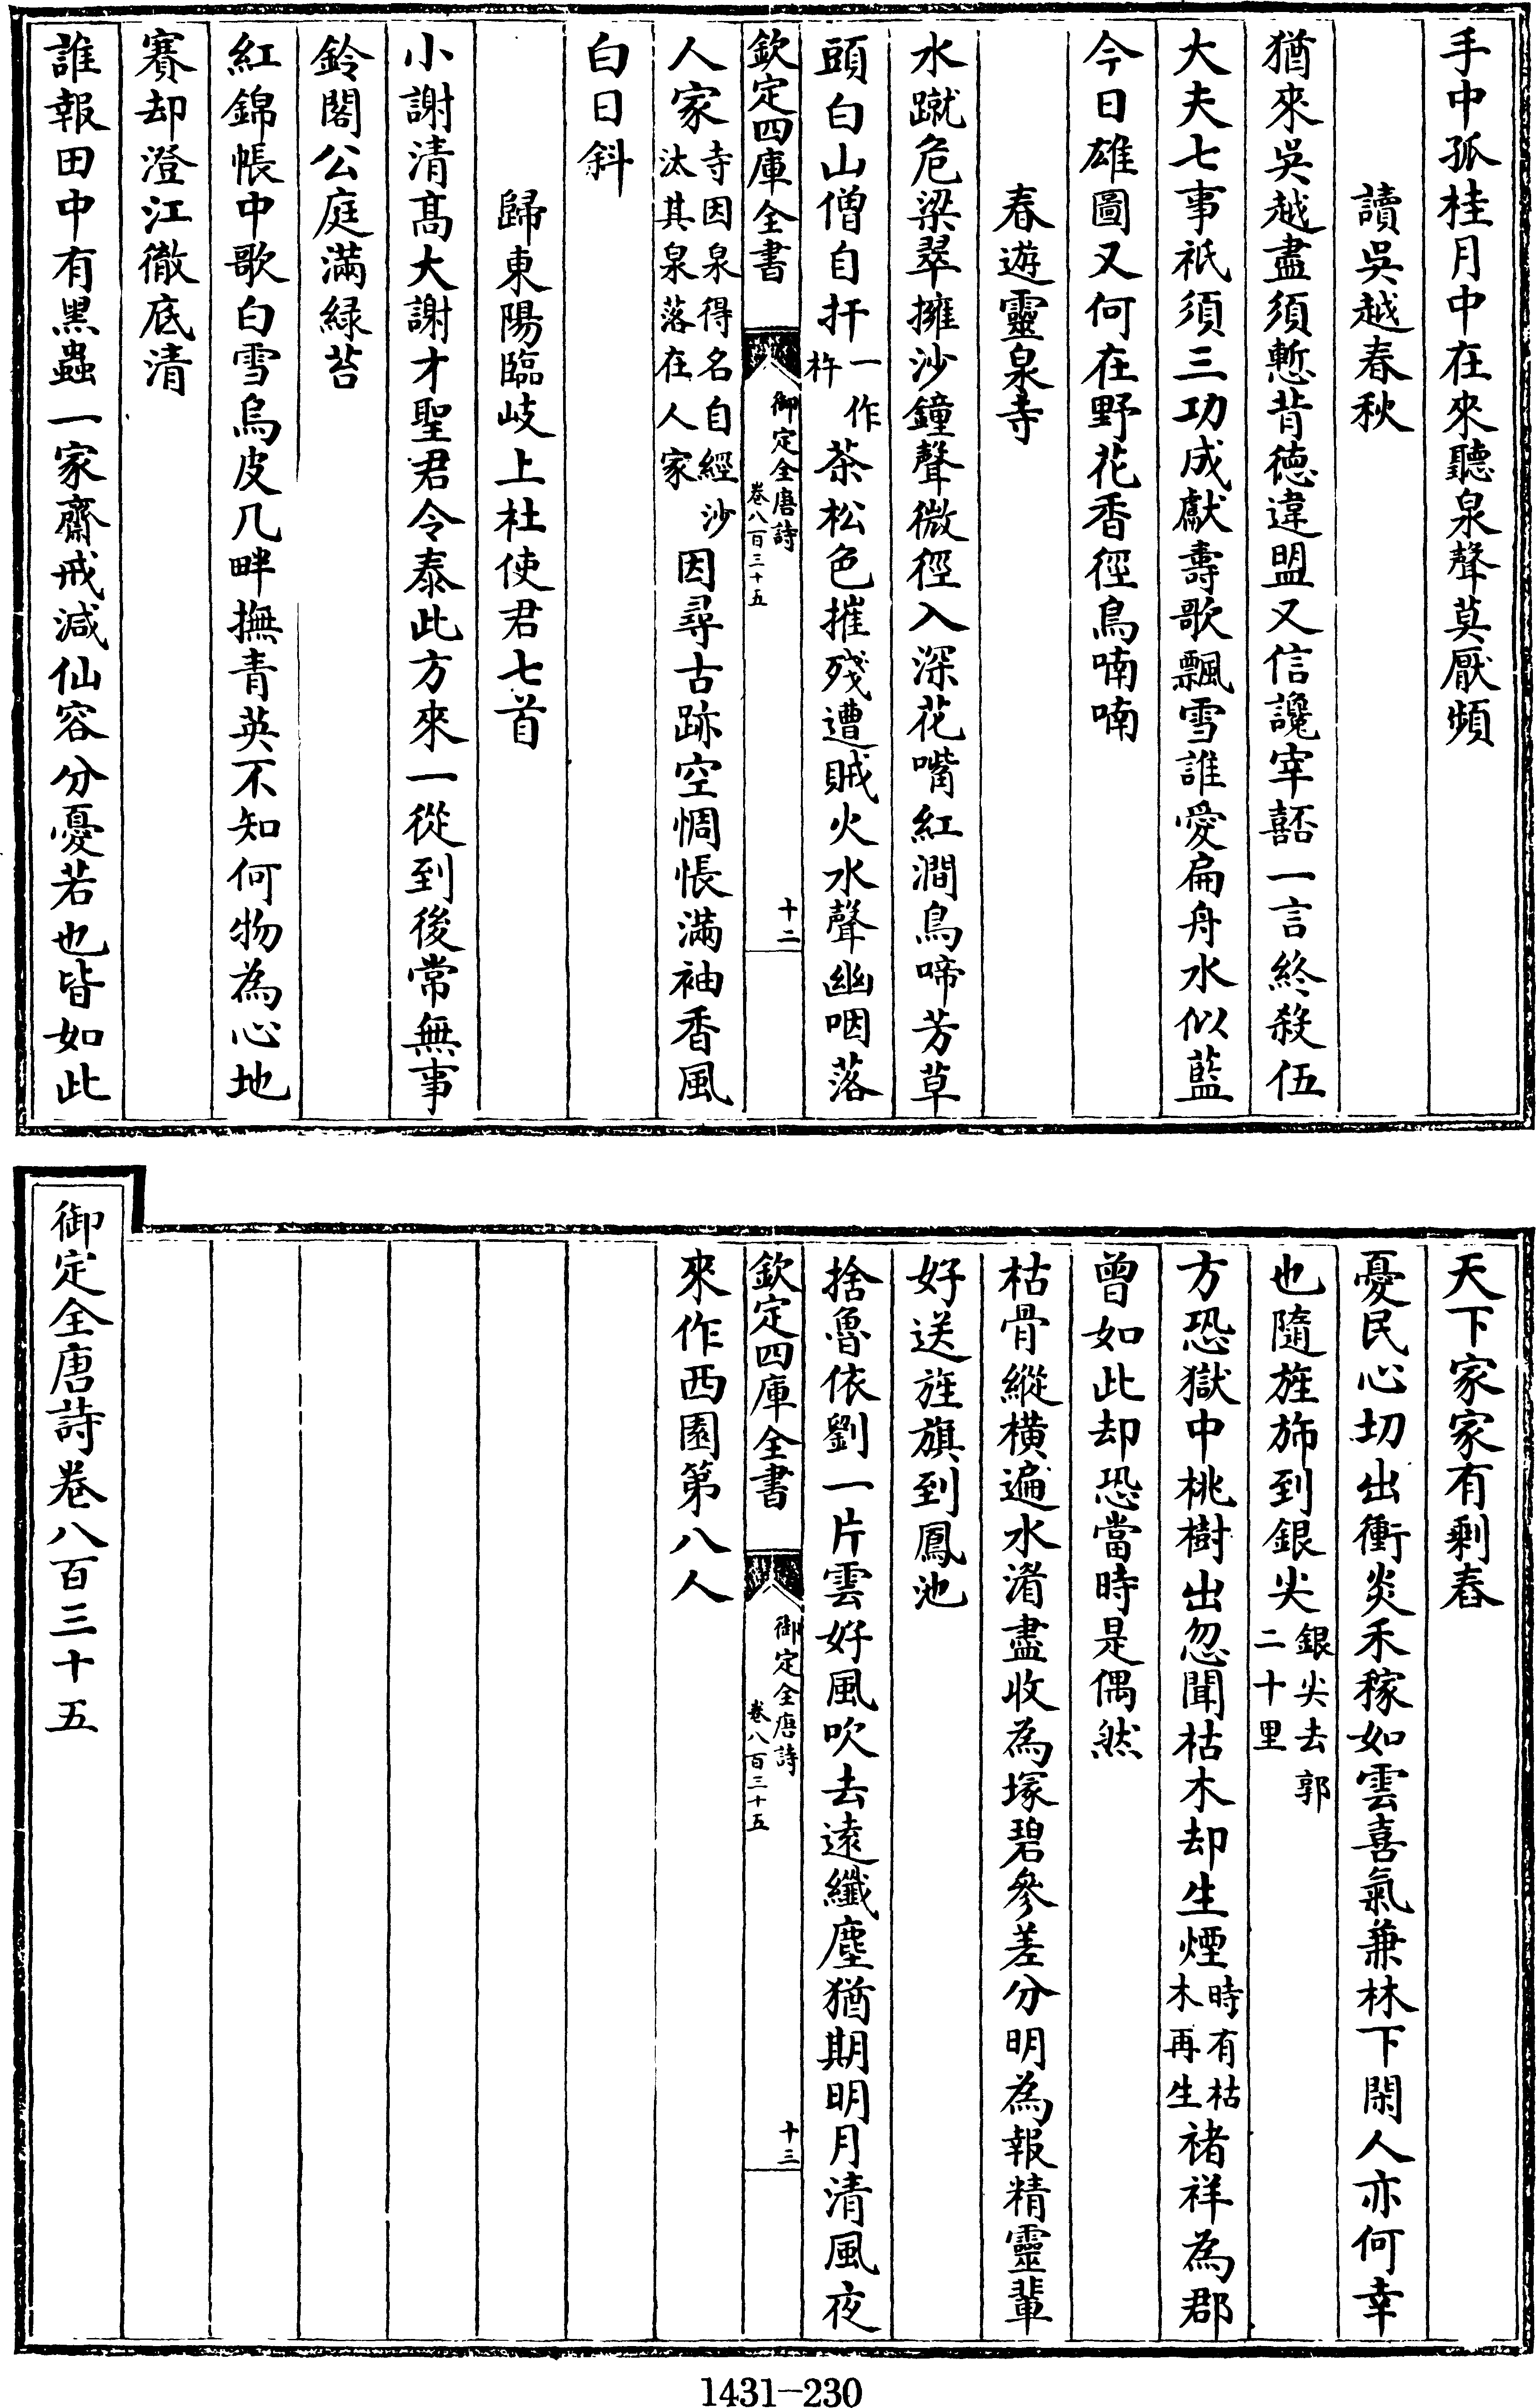 手中孤桂月中在來聽泉聲莫厭頻
讀吳越春秋
猶來吳越盡須慙背徳違盟又信讒宰嚭一言終殺伍
大夫七事祇須三功成獻壽歌飄雪誰愛扁舟水似藍
今日雄圖又何在野花香徑鳥喃喃
春遊靈泉寺
水蹴危梁翠擁沙鐘聲微徑入深花嘴紅澗鳥啼芳草
頭白山僧自扞一作杵茶松色摧殘遭賊火水聲幽咽落
欽定四庫全書
御定全唐詩
卷八百三十五
十二
人家寺因泉得名自經沙汰其泉落在人家因尋古跡空惆悵滿袖香風
白日斜
歸東陽臨岐上杜使君七首
小謝清髙大謝才聖君令泰此方來一從到後常無事
鈴閣公庭滿緑苔
紅錦帳中歌白雪烏皮几畔撫青英不知何物為心地
賽却澄江徹底清
誰報田中有黑蟲一家齋戒減仙容分憂若也皆如此
天下家家有剩舂
憂民心切出衝炎禾稼如雲喜氣兼林下閑人亦何幸
也隨旌斾到銀尖銀尖去郭二十里
方恐獄中桃樹出忽聞枯木却生煙時有枯木再生禇祥為郡
曾如此却恐當時是偶然
枯骨縱横遍水湄盡收為塚碧參差分明為報精靈輩
好送旌旗到鳳池
捨魯依劉一片雲好風吹去逺纎塵猶期明月清風夜
欽定四庫全書
御定全唐詩
卷八百三十五
十三
來作西園第八人
御定全唐詩卷八百三十五
1431-230